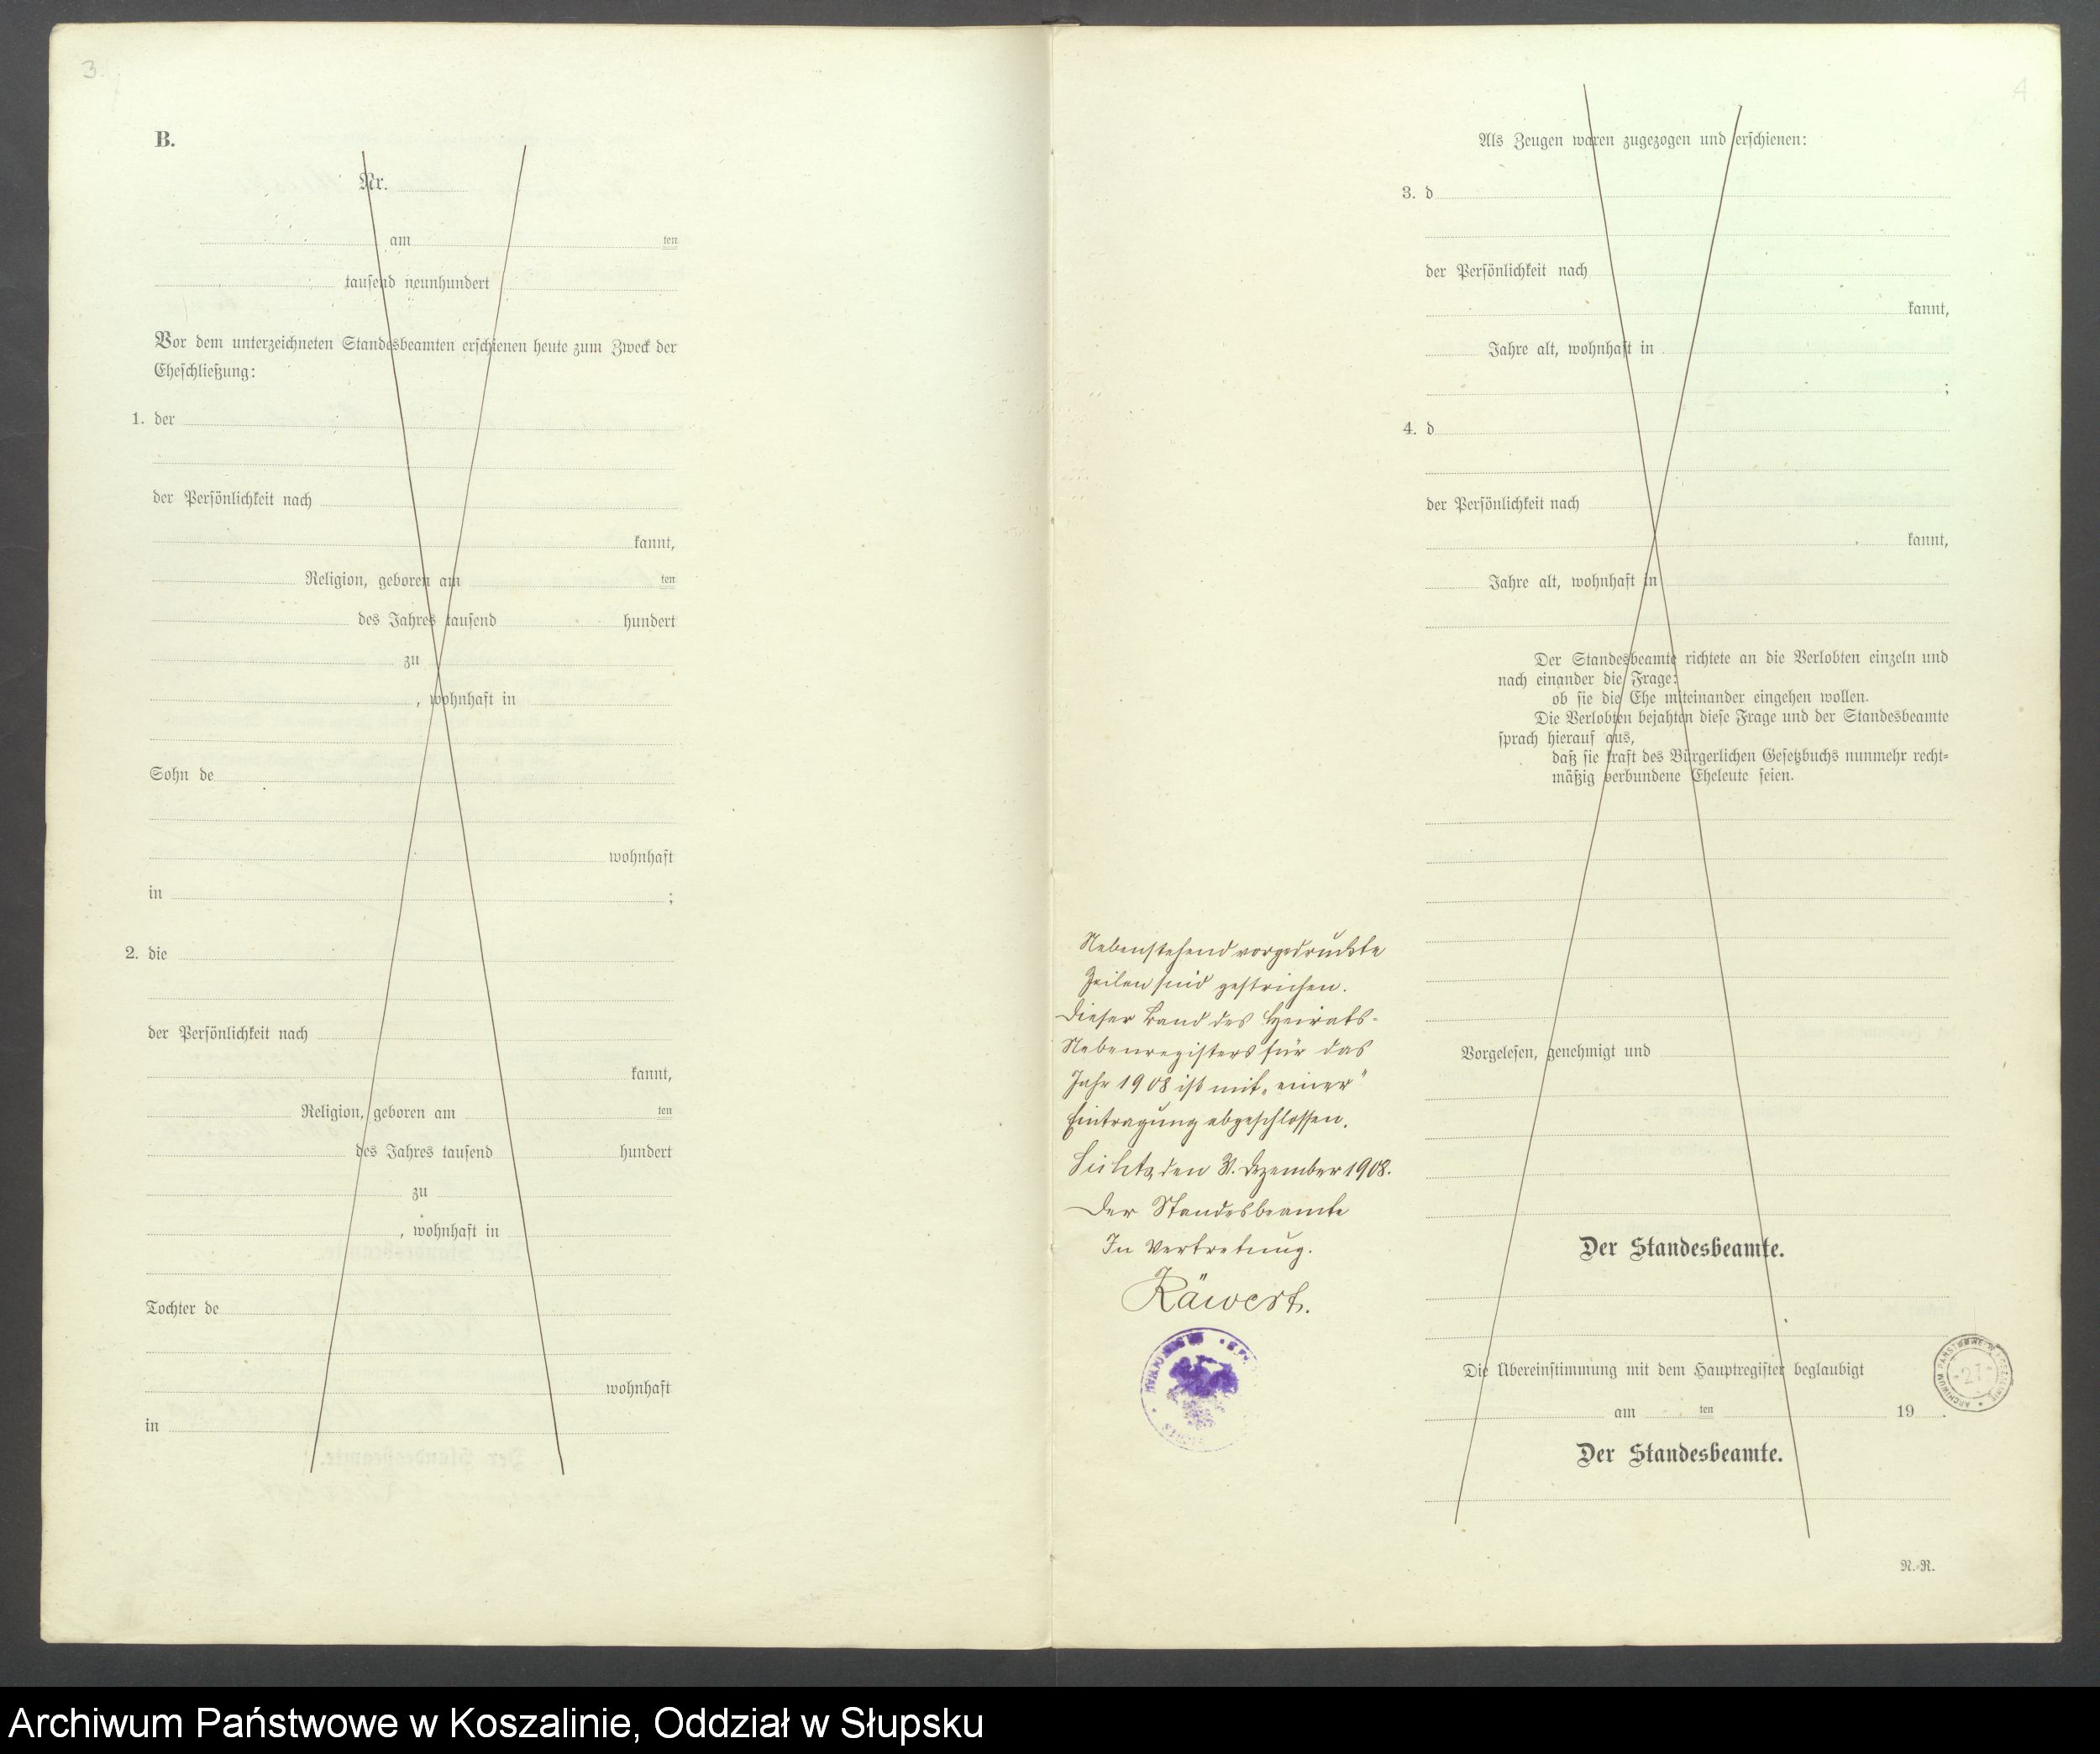 3.
B.
Nr.
am ten
tausend neunhundert
Vor dem unterzeichneten Standesbeamten erschienen heute zum Zweck der
Eheschließung:
1. der
der Persönlichkeit nach
kannt,
Religion, geboren am ten
des Jahres tausend hundert
zu
, wohnhaft in
Sohn de
wohnhaft
in ;
2. die
der Persönlichkeit nach
kannt,
Religion, geboren am ten
des Jahres tausend hundert
zu
, wohnhaft in
Tochter de
wohnhaft
in
4
Als Zeugen waren zugezogen und erschienen:
3. d
der Persönlichkeit nach
kannt,
Jahre alt, wohnhaft in
;
4. d
der Persönlichkeit nach
kannt,
Jahre alt, wohnhaft in
Der Standesbeamte richtete an die Verlobten einzeln und
nach einander die Frage:
ob sie die Ehe miteinander eingehen wollen.
Die Verlobten bejahten diese Frage und der Standesbeamte
sprach hierauf aus,
daß sie kraft des Bürgerlichen Gesetzbuchs nunmehr recht-
mäßig verbundene Eheleute seien.
Nebenstehend vorgedruckte
Zeilen sind gestrichen.
Dieser Band des Heirats-
Nebenregisters für das
Jahr 1908 ist mit „einer"
Eintragung abgeschlossen.
den 31. Dezember 1908.
Der Standesbeamte
In Vertretung.
Räwert.
Vorgelesen, genehmigt und
Der Standesbeamte.
Die Übereinstimmung mit dem Hauptregister beglaubigt
am ten 19 .
Der Standesbeamte.
N.-R.
Archiwum Państwowe w Koszalinie, Oddział w Słupsku